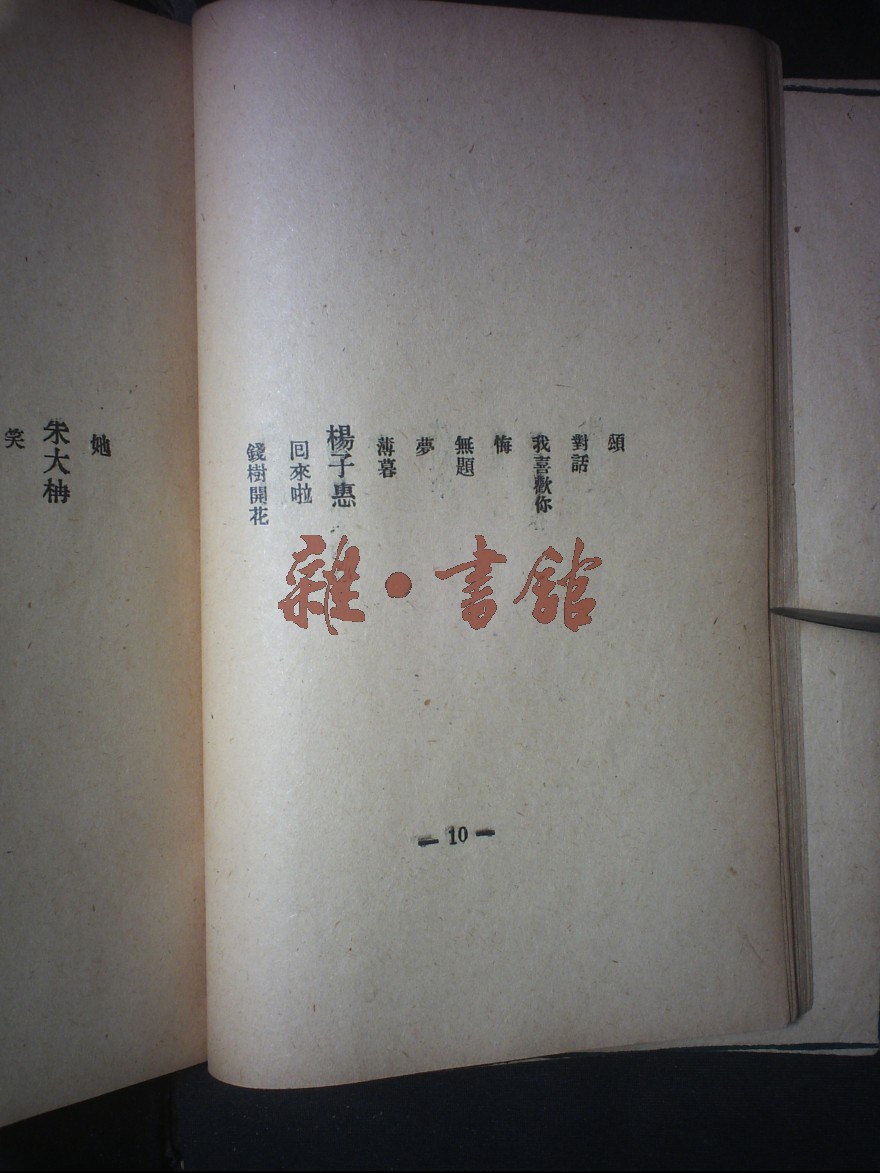 頌
對話
我喜歡你
悔
無題
夢
薄暮
楊子惠
回來啦
錢樹開花
雜·書館
— 10 —
她
朱大枬
笑